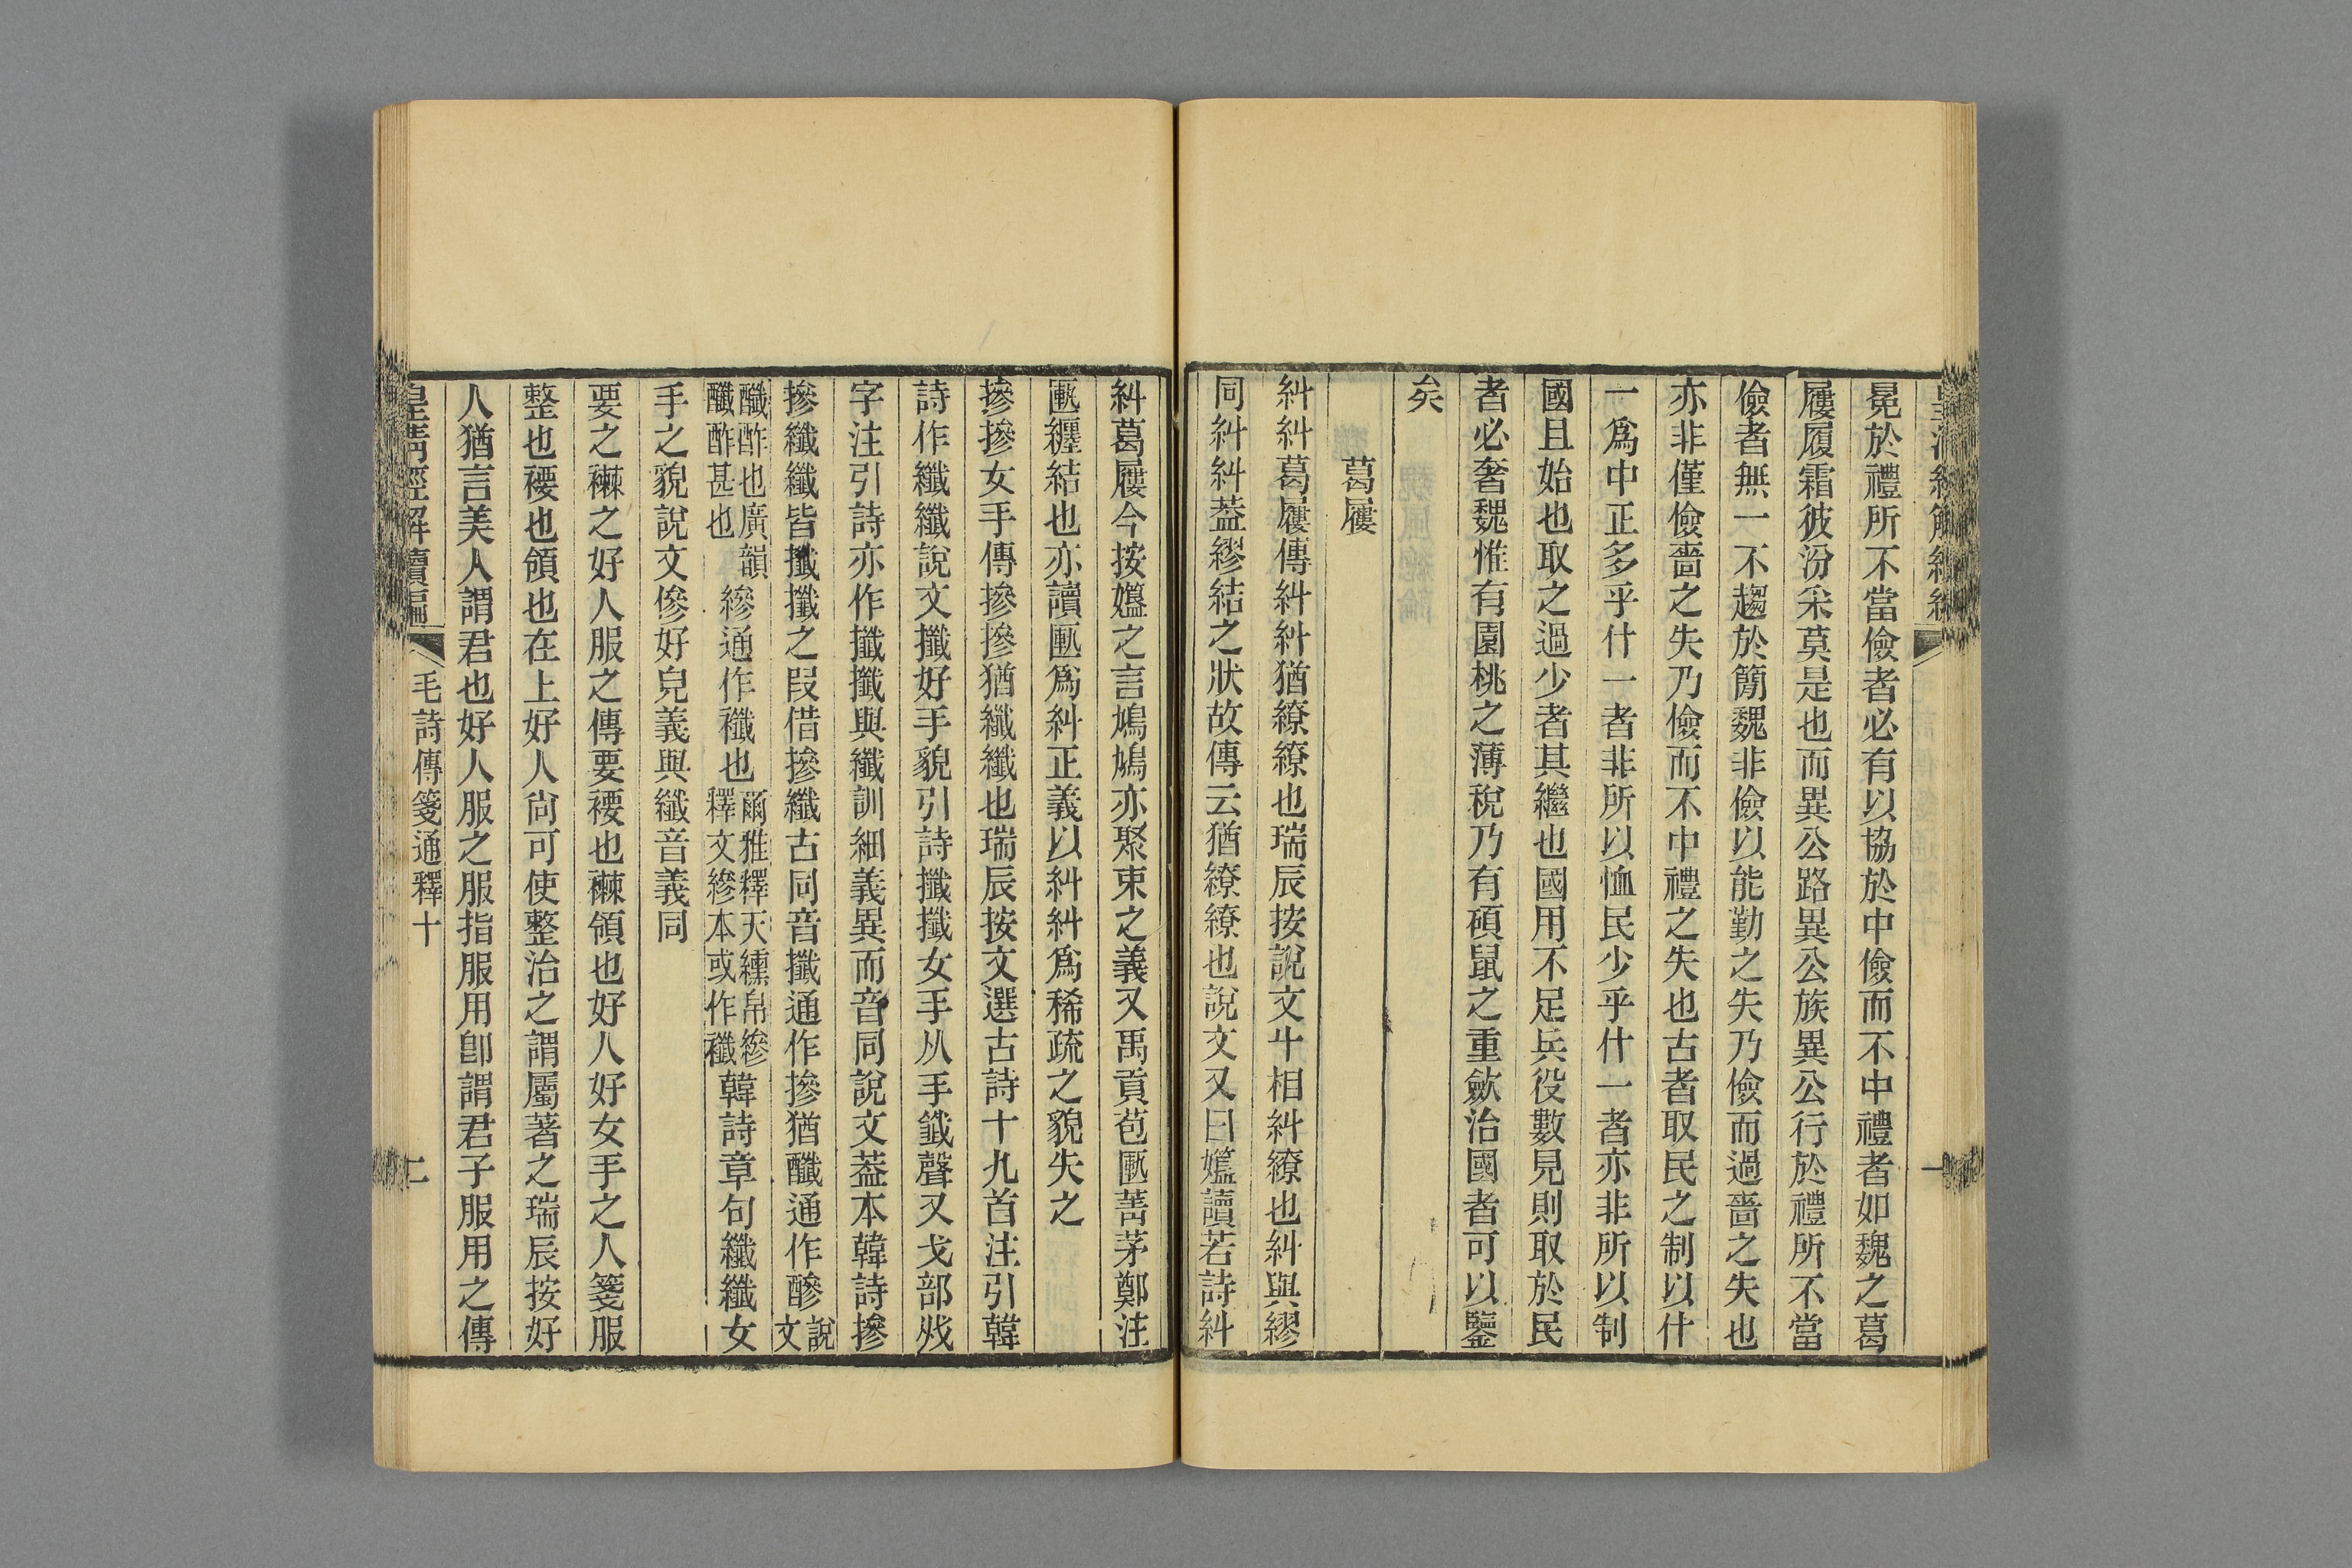 冕於禮所不當儉者必有以協於中儉而不中禮者如魏之葛
屨履霜彼汾采莫是也而異公路異公族異公行於禮所不當
儉者無一不趨於簡魏非儉以能勤之失乃儉而過嗇之失也
亦非僅儉嗇之失乃儉而不中禮之失也古者取民之制以什
一爲中正多乎什一者非所以恤民少乎什一者亦非所以制
國且始也取之過少者其繼也國用不足兵役數見則取於民
者必奢魏惟有園桃之薄稅乃有碩鼠之重歛治國者可以鑒
矣
葛屨
糾糾葛屨傳糾糾猶繚繚也瑞辰按說文丩相糾繚也糾與繆
同糾糾葢繆結之狀故傳云猶繚繚也說文又曰㜸讀若詩糾
糾葛屨今按㜸之言鳩鳩亦聚束之義又禹貢苞匭菁茅鄭注
匭纒結也亦讀匭爲糾正義以糾糾爲稀疏之貌失之
摻摻女手傳摻摻猶纖纖也瑞辰按文選古詩十九首注引韓
詩作纖纖說文攕好手貌引詩攕攕女手从手韱聲又戈部𢦏
字注引詩亦作攕攕與纖訓細義異而音同說文葢本韓詩摻
摻纖纖皆攕攕之叚借摻纖古同音攕通作摻猶醶通作醦說文
醶酢也廣韻醶酢甚也縿通作襳也爾雅釋天纁帛縿釋文縿本或作襳韓詩章句纖纖女
手之貌說文傪好皃義與纖音義同
要之襋之好人服之傳要褄也襋領也好人好女手之人箋服
整也褄也領也在上好人尙可使整治之謂屬著之瑞辰按好
人猶言美人謂君也好人服之服指服用卽謂君子服用之傳
皇清經解續編 毛詩傳箋通釋十 二